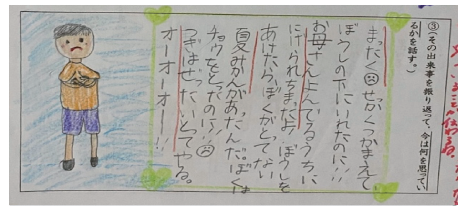 ③(その出来事を振り返って、今は何を思っているかを話す。)
まったく せっかくつかまえて
ぼうしの下にいれたのに!!
お母さんよんでるうちに
にげられちまったよ ぼうしを
あけたら、ぼくがとってない
夏みかんがあたんだ。ぼくは
チョウをとったのに!!
つぎはぜったいとてやる。
オーオーオーオー!!